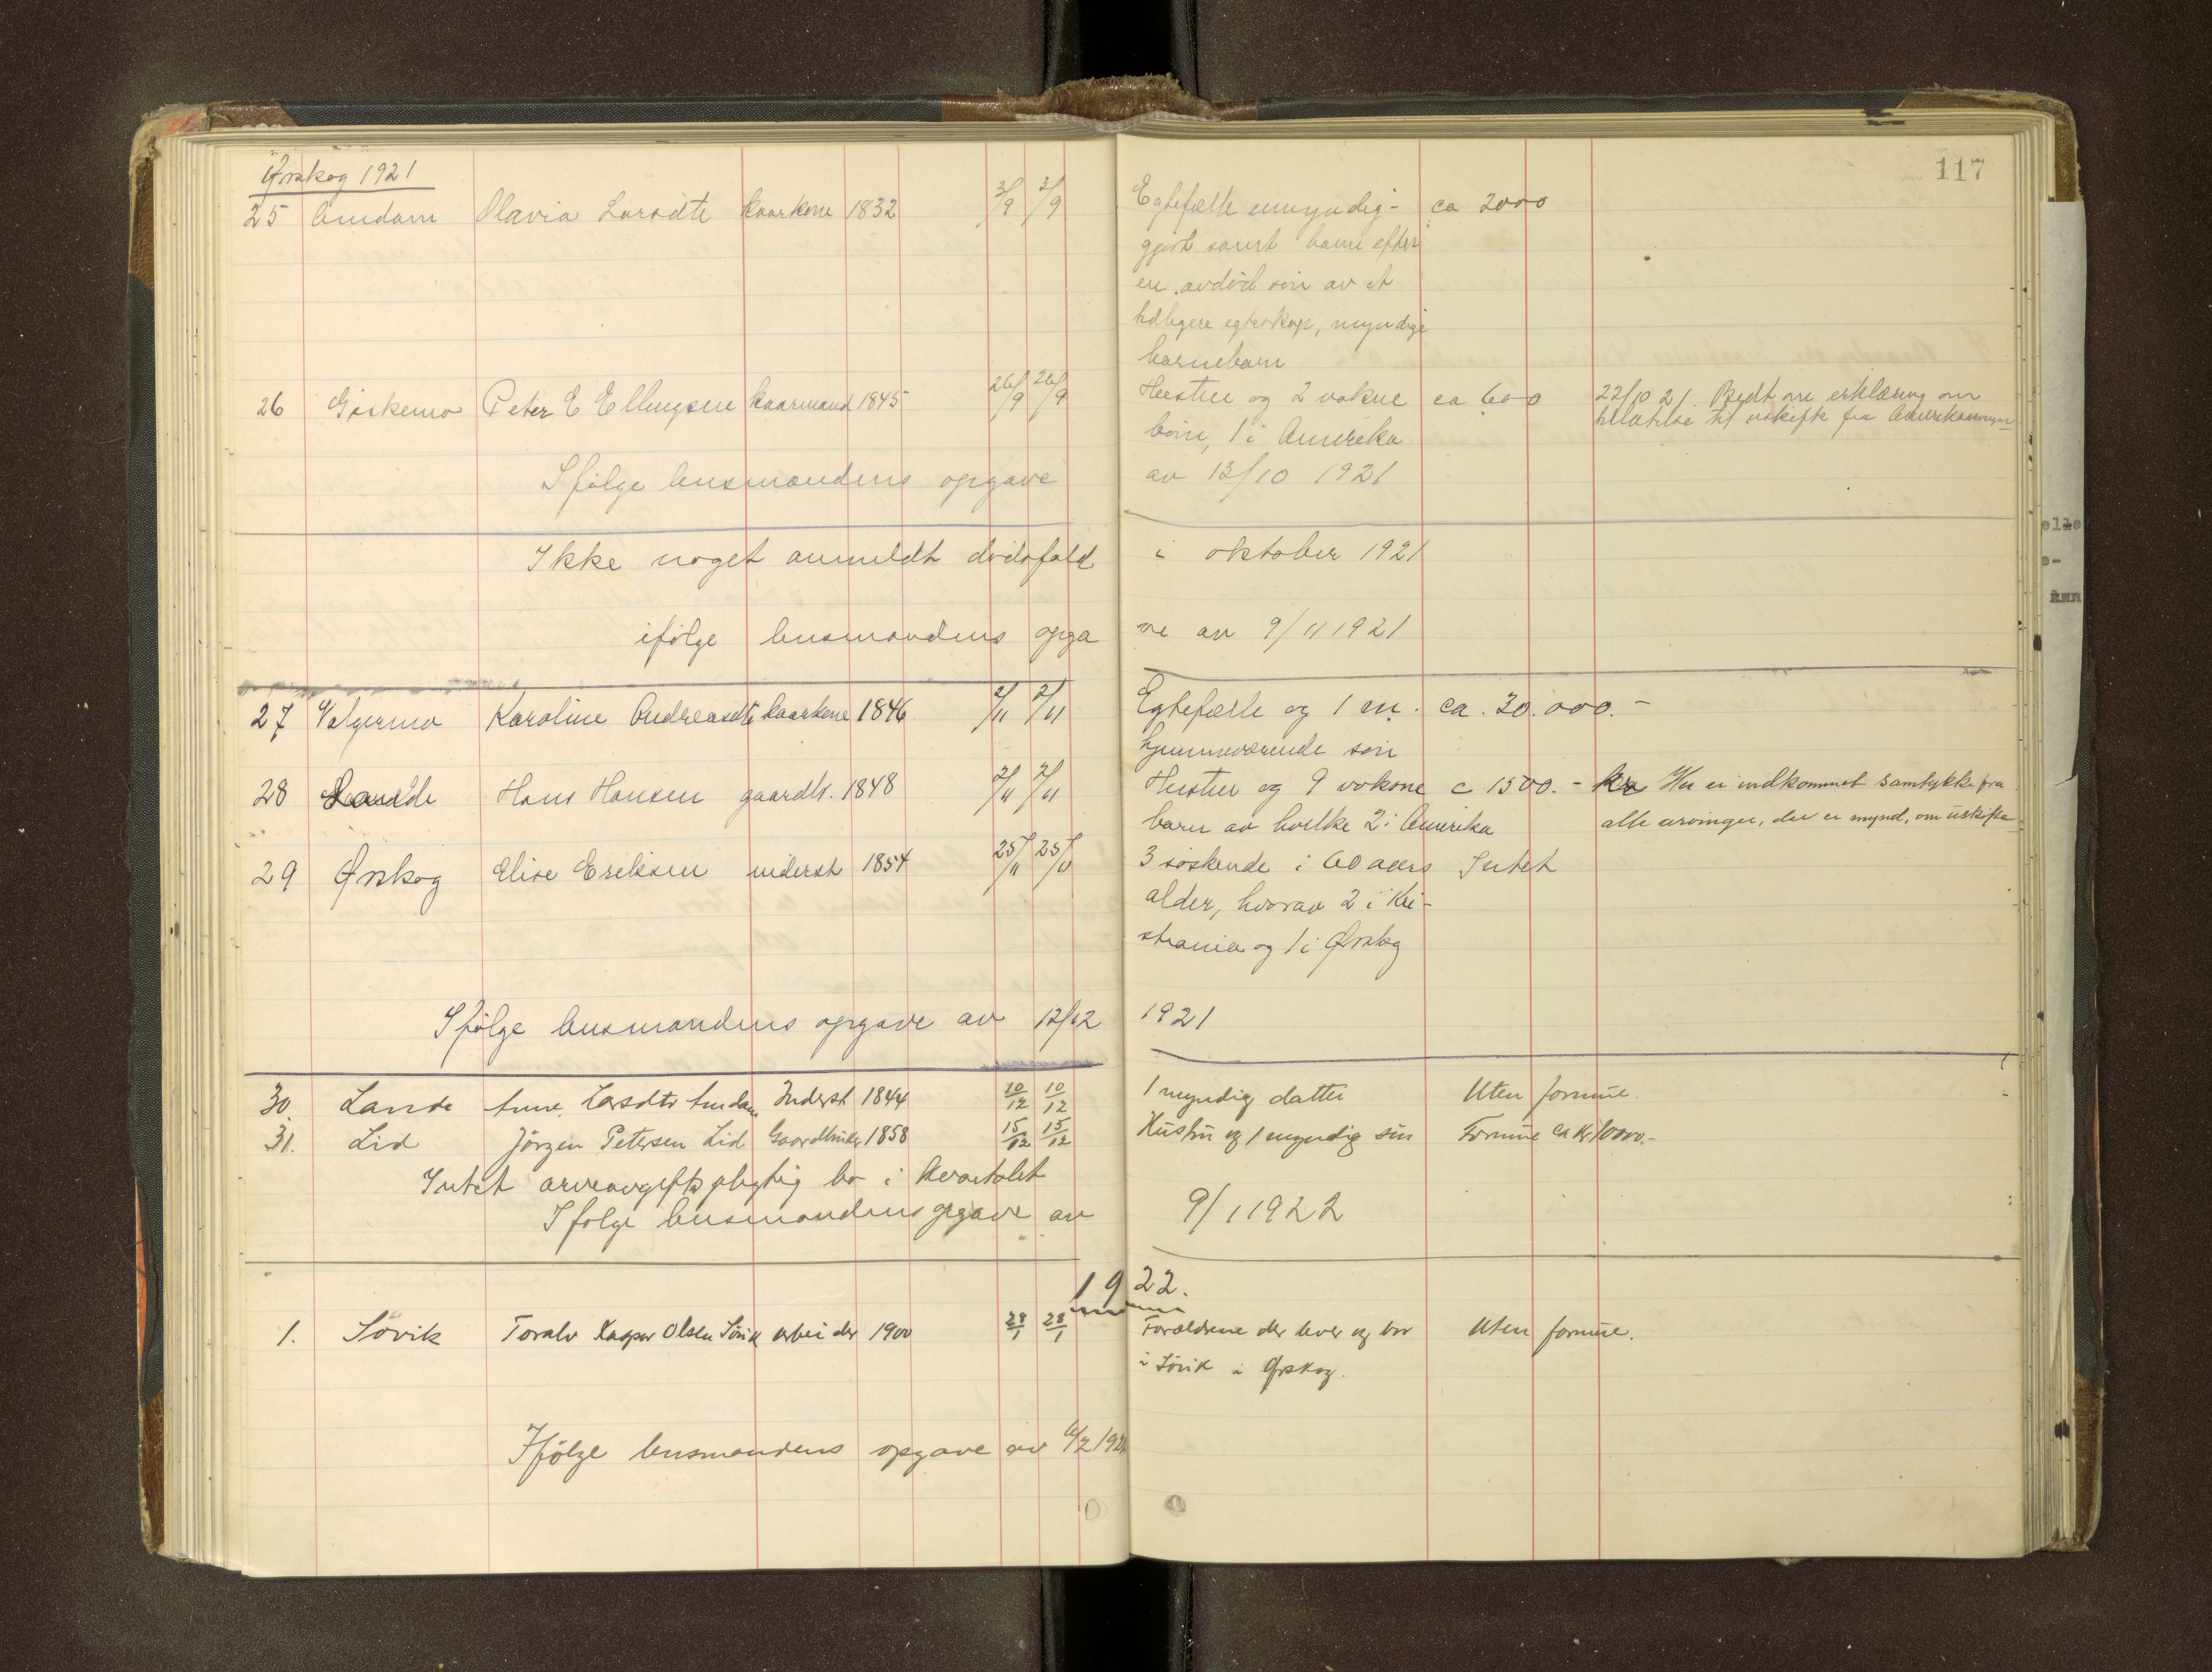 117
Ørskog 1921
25 Amdam Olavia Larsdtr kaarkone 1832 3/9 3/9 Egtefælle umyndig- ca 2000
gjort samt barn efter
en avdød søn av et
tidligere egteskap, myndige
barnebarn
26 Giskemo Peter E Ellingsen kaarmand 1845 26/9 26/9 Hustru og 2 voksne ca 600 22/10 21. Bedt om erklæring om
børn, 1 i Amerika tillatelse til uskifte fra
Ifølge lensmandens opgave av 13/10 1921
Ikke noget anmeldt dødsfald i oktober 1921
ifølge lensmandens opgave av 9/11 1921
27 Valgermo Karoline Andreasdtr kaarkone 1846 2/11 2/11 Egtefælle og 1 m. ca. 20.000.-
hjemmeværende søn
28 Lande Hans Hansen gaardbr. 1848 2/11 2/11 Hustru og 9 voksne c 1500.- Her er indkommet samtykke fra
barn av hvilke 2 i Amerika alle arvinger, der er mynd, om uskifte
29 Ørskog Elise Eriksen inderst 1854 25/11 25/11 3 søskende i 60 aars Intet
alder, hvorav 2 i Kri-
stiania og 1 i Ørskog
Ifølge lensmandens opgave av 12/12 1921
30. Lande Anne Larsdtr Amdam Inderst 1844 10/12 10/12 1 myndig datter Uten formue.
31. Lid Jörgen Petersen Lid Gaardbruker 1858 15/12 15/12 Hustru og 1 myndig søn Formue ca kr. 10000.-
Intet arveavgiftspligtig bo i kvartalet
Ifølge lensmandens opgave av 9/1 1922
1922.
1. Sövik Toralv Kaspar Olsen Sövik arbeider 1900 28/1 28/1 Forældrene der lever og bor Uten formue.
i Sövik i Ørskog.
Ifølge lensmandens opgave av 6/2 192
elle
e-